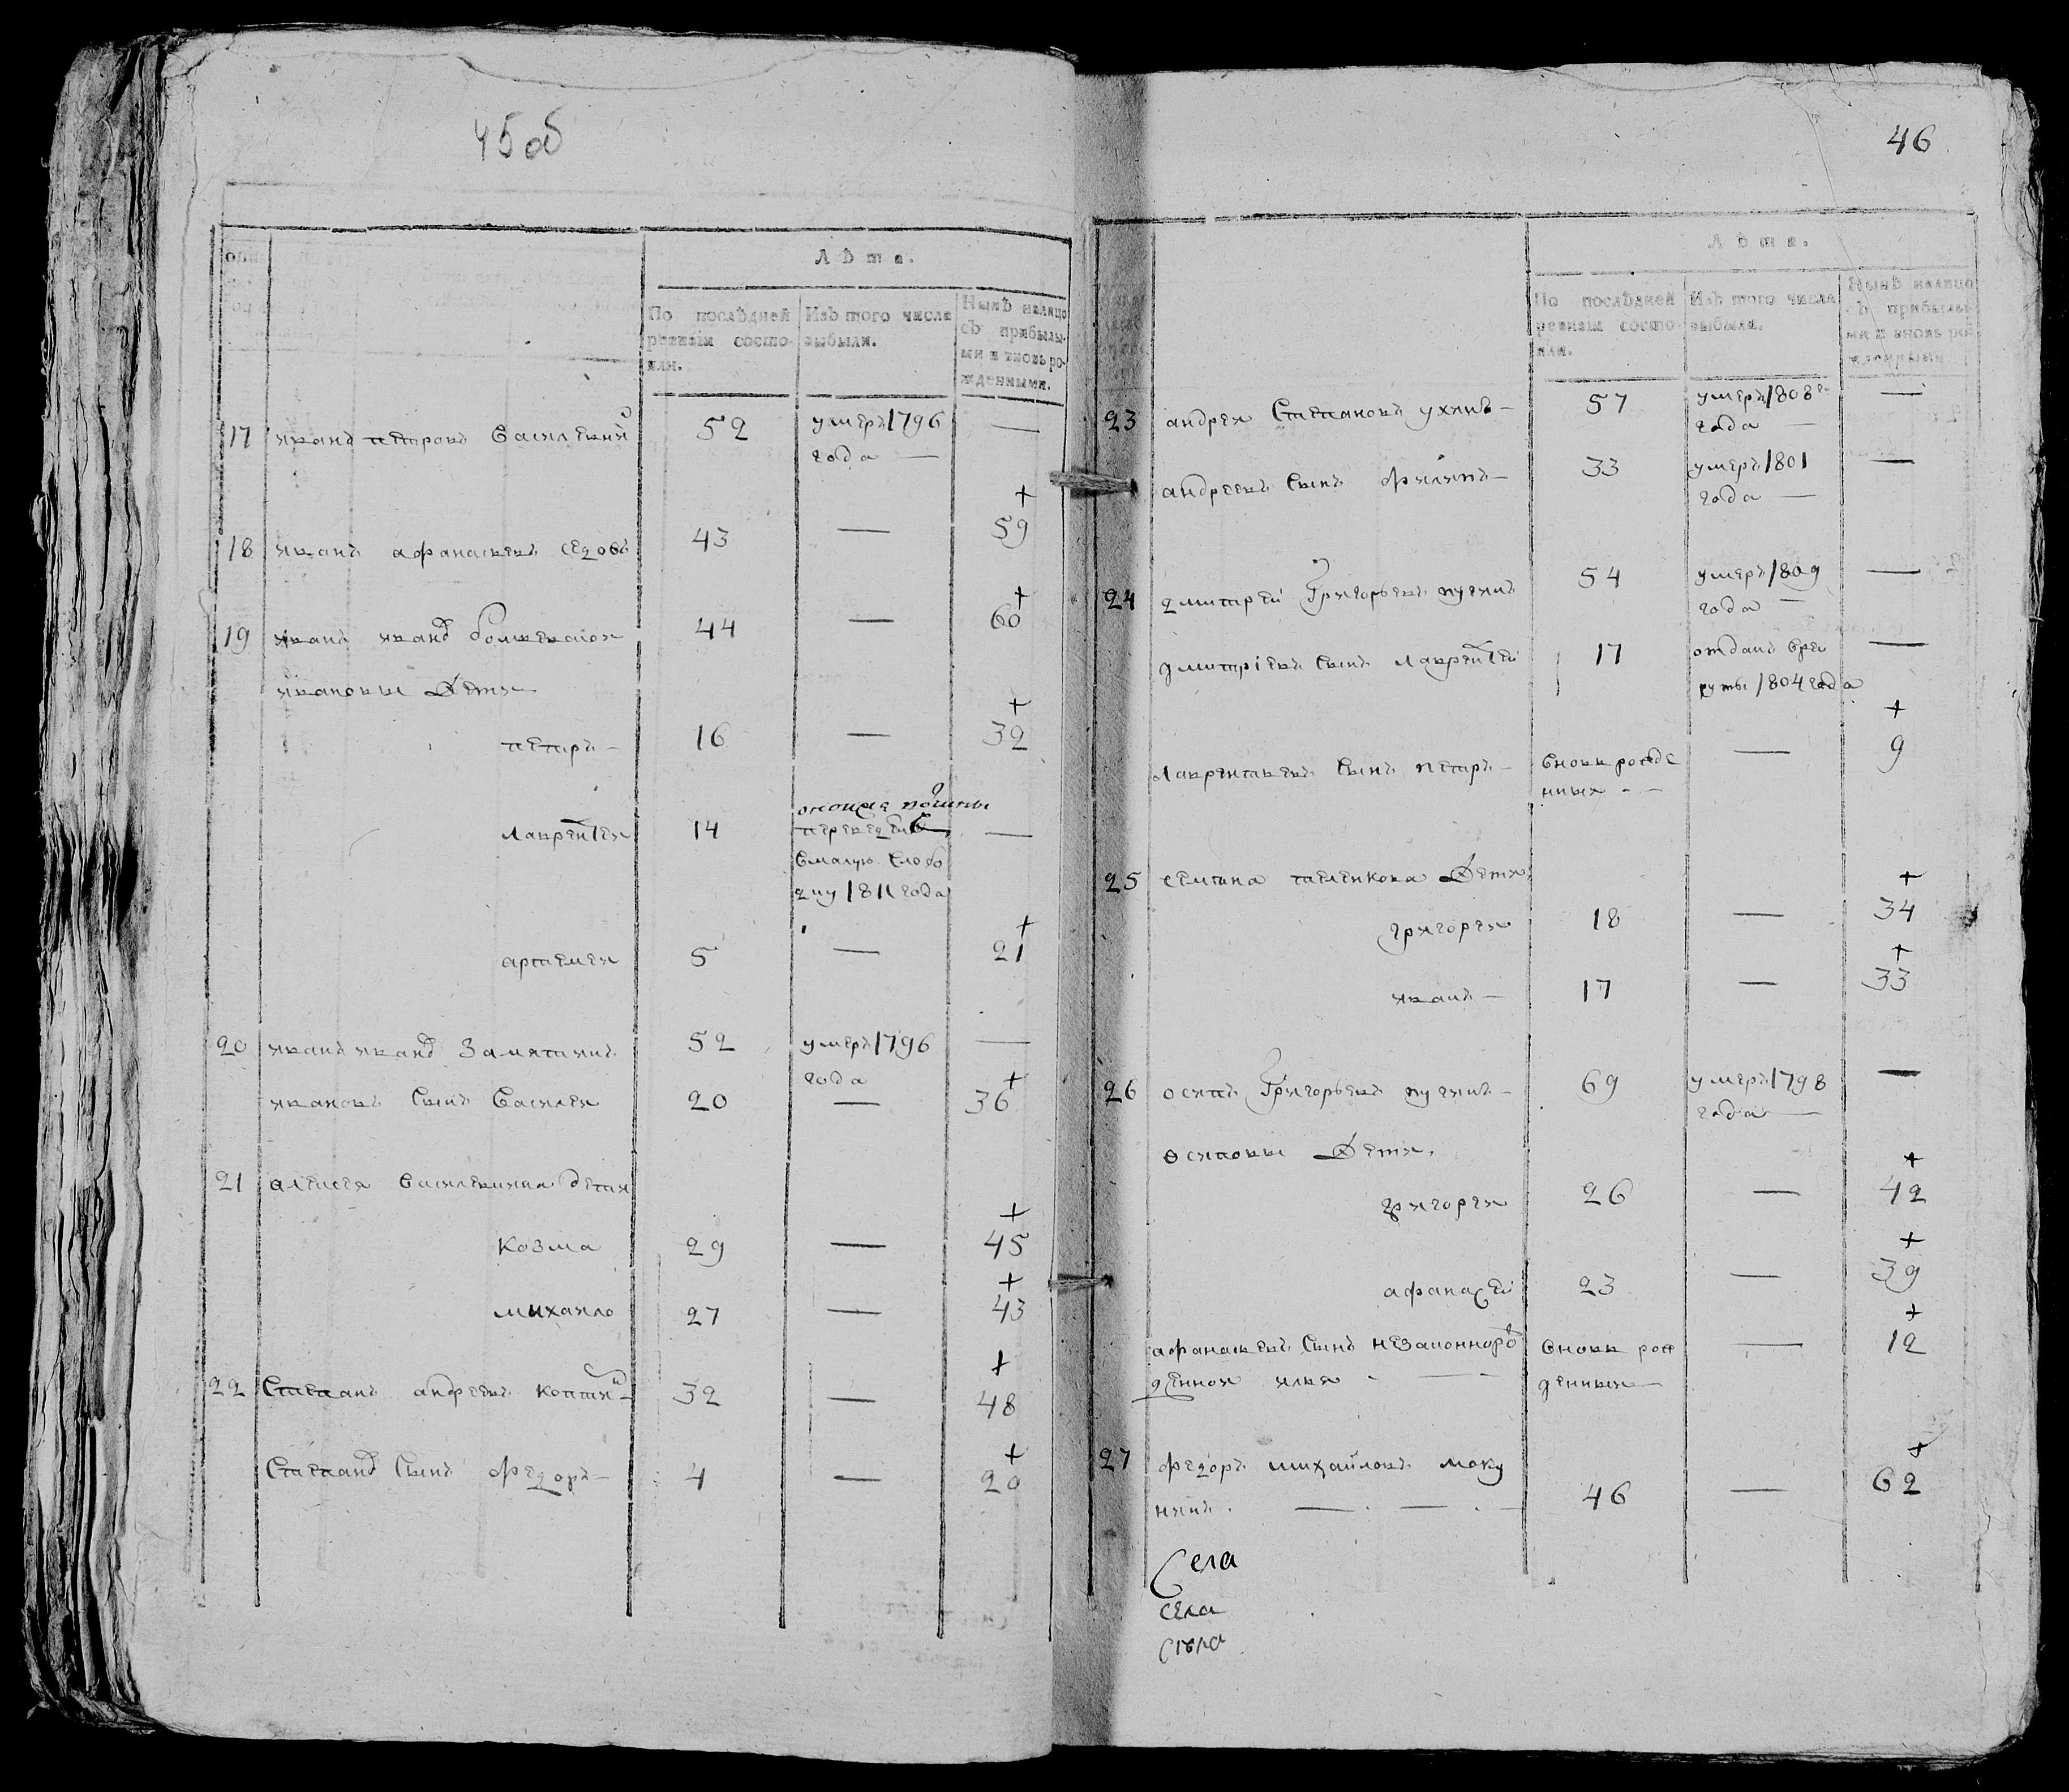 45об
Лѣта.
По послѣдней
ревизіи состо-
яли.
Изъ того числа
выбыли.
Нынѣ налицо
съ прибылы-
ми и вновь ро-
жденными.
17 иванъ петровъ Василевый 52 умеръ 1796 —
года —
18 иванъ афанасьевъ седовъ 43 — + 59
19 иванъ иванов 44 — + 60
ивановы Дети
петръ — 16 — + 32
лаврентеи 14 переведенъ —
Вмалую Слобо
дцу 1811 года
артемеи 5 — + 21
20 иванъ иванов Замятнинъ 52 умеръ 1796 —
года
ивановъ Сынъ Василеи 20 — + 36
21 алексея дети
козма 29 — + 45
михаило 27 — + 43
22 Степанъ андреевъ 32 — + 48
Степанов Сынъ федоръ — 4 — + 20
46
Лѣта.
По послѣдней
ревизіи состо-
яли.
Изъ того числа
выбыли.
Нынѣ налицо
съ прибылы-
ми и вновь ро-
жденными.
23 андреи Степановъ ухинъ — 57 умеръ 1808 го —
года —
андреевъ Сынъ филипъ — 33 умеръ 1801 —
года —
24 дмитреи Григорьевъ пугинъ 54 умеръ 1809 —
года —
дмитріевъ Сынъ лаврентеи 17 отданъ Врек —
руты 1804 года
лаврентьевъ Сынъ петръ — Вновь рожде — + 9
нныи - -
25 семиона Дети
григореи 18 — + 34
иванъ — 17 — + 33
26 осипъ Григорьевъ пугинъ — 69 умеръ 1798 —
года —
осиповы Дети.
григореи 26 — + 42
афанасеи 23 — + 39
афанасьевъ Сынъ незаконноро Вновь рож — + 12
денной илья - — — денныи —
27 федоръ михаиловъ моку
нинъ . — . — . — 46 — + 62
Села
села
села